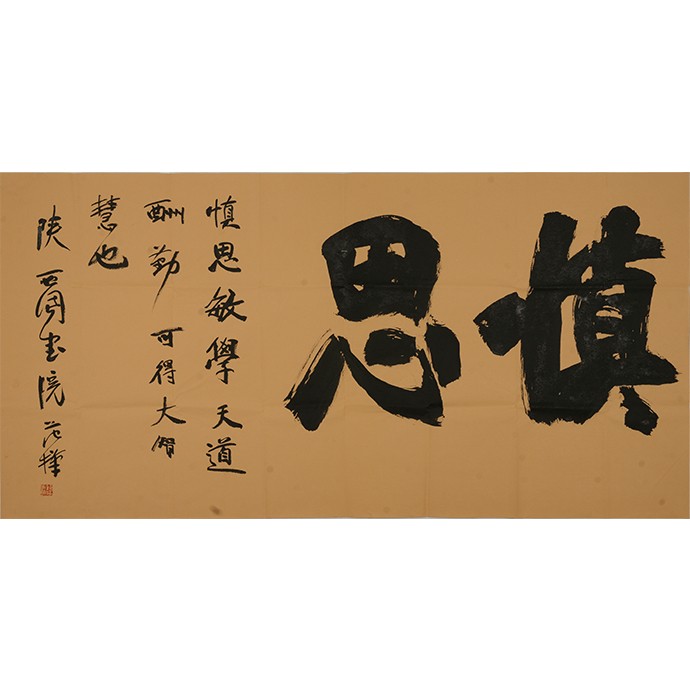 慎思
慎思敏學天道
酬勤可得大智
慧也
陕西國畫院范華